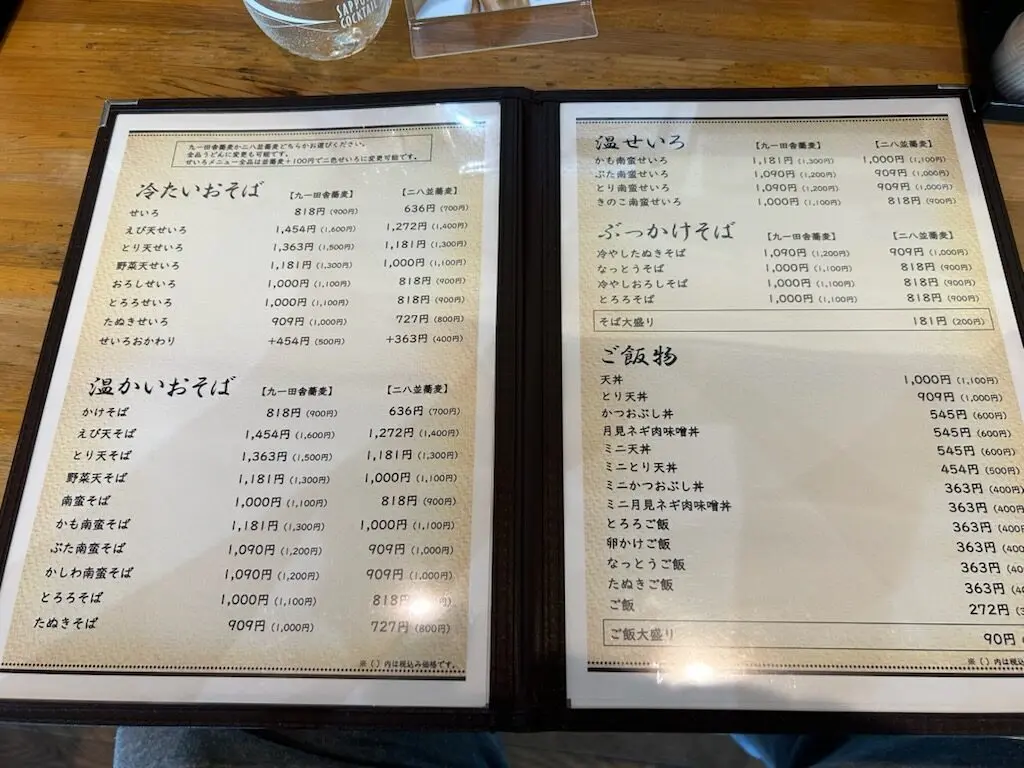 SAPPO
COCKTAIL
九一田舎蕎麦か二八並蕎麦どちらかお選びください。
全品うどんに変更も可能です。
せいろメニュー全品は並蕎麦+100円で二色せいろに変更可能です。
冷たいおそば 【九一田舎蕎麦】 【二八並蕎麦】
せいろ 818円(900円) 636円(700円)
えび天せいろ 1,454円(1,600円) 1,272円(1,400円)
とり天せいろ 1,363円(1,500円) 1,181円(1,300円)
野菜天せいろ 1,181円(1,300円) 1,000円(1,100円)
おろしせいろ 1,000円(1,100円) 818円(900円)
とろろせいろ 1,000円(1,100円) 818円(900円)
たぬきせいろ 909円(1,000円) 727円(800円)
せいろおかわり +454円(500円) +363円(400円)
温かいおそば 【九一田舎蕎麦】 【二八並蕎麦】
かけそば 818円(900円) 636円(700円)
えび天そば 1,454円(1,600円) 1,272円(1,400円)
とり天そば 1,363円(1,500円) 1,181円(1,300円)
野菜天そば 1,181円(1,300円) 1,000円(1,100円)
南蛮そば 1,000円(1,100円) 818円(900円)
かも南蛮そば 1,181円(1,300円) 1,000円(1,100円)
ぶた南蛮そば 1,090円(1,200円) 909円(1,000円)
かしわ南蛮そば 1,090円(1,200円) 909円(1,000円)
とろろそば 1,000円(1,100円) 818円
たぬきそば 909円(1,000円) 727円(800円)
※()内は税込み価格です。
温せいろ 【九一田舎蕎麦】 【二八並蕎麦】
かも南蛮せいろ 1,181円(1,300円) 1,000円(1,100円)
ぶた南蛮せいろ 1,090円(1,200円) 909円(1,000円)
とり南蛮せいろ 1,090円(1,200円) 909円(1,000円)
きのこ南蛮せいろ 1,000円(1,100円) 818円(900円)
ぶっかけそば 【九一田舎蕎麦】 【二八並蕎麦】
冷やしたぬきそば 1,090円(1,200円) 909円(1,000円)
なっとうそば 1,000円(1,100円) 818円(900円)
冷やしおろしそば 1,000円(1,100円) 818円(900円)
とろろそば 1,000円(1,100円) 818円(900円)
そば大盛り 181円(200円)
ご飯物
天丼 1,000円(1,100円)
とり天丼 909円(1,000円)
かつおぶし丼 545円(600円)
月見ネギ肉味噌丼 545円(600円)
ミニ天丼 545円(600円)
ミニとり天丼 454円(500円)
ミニかつおぶし丼 363円(400円
ミニ月見ネギ肉味噌丼 363円(400円
とろろご飯 363円(400
卵かけご飯 363円(400
なっとうご飯 363円(40
たぬきご飯 363円(4
ご飯 272円
ご飯大盛り 90円
※()内は税込